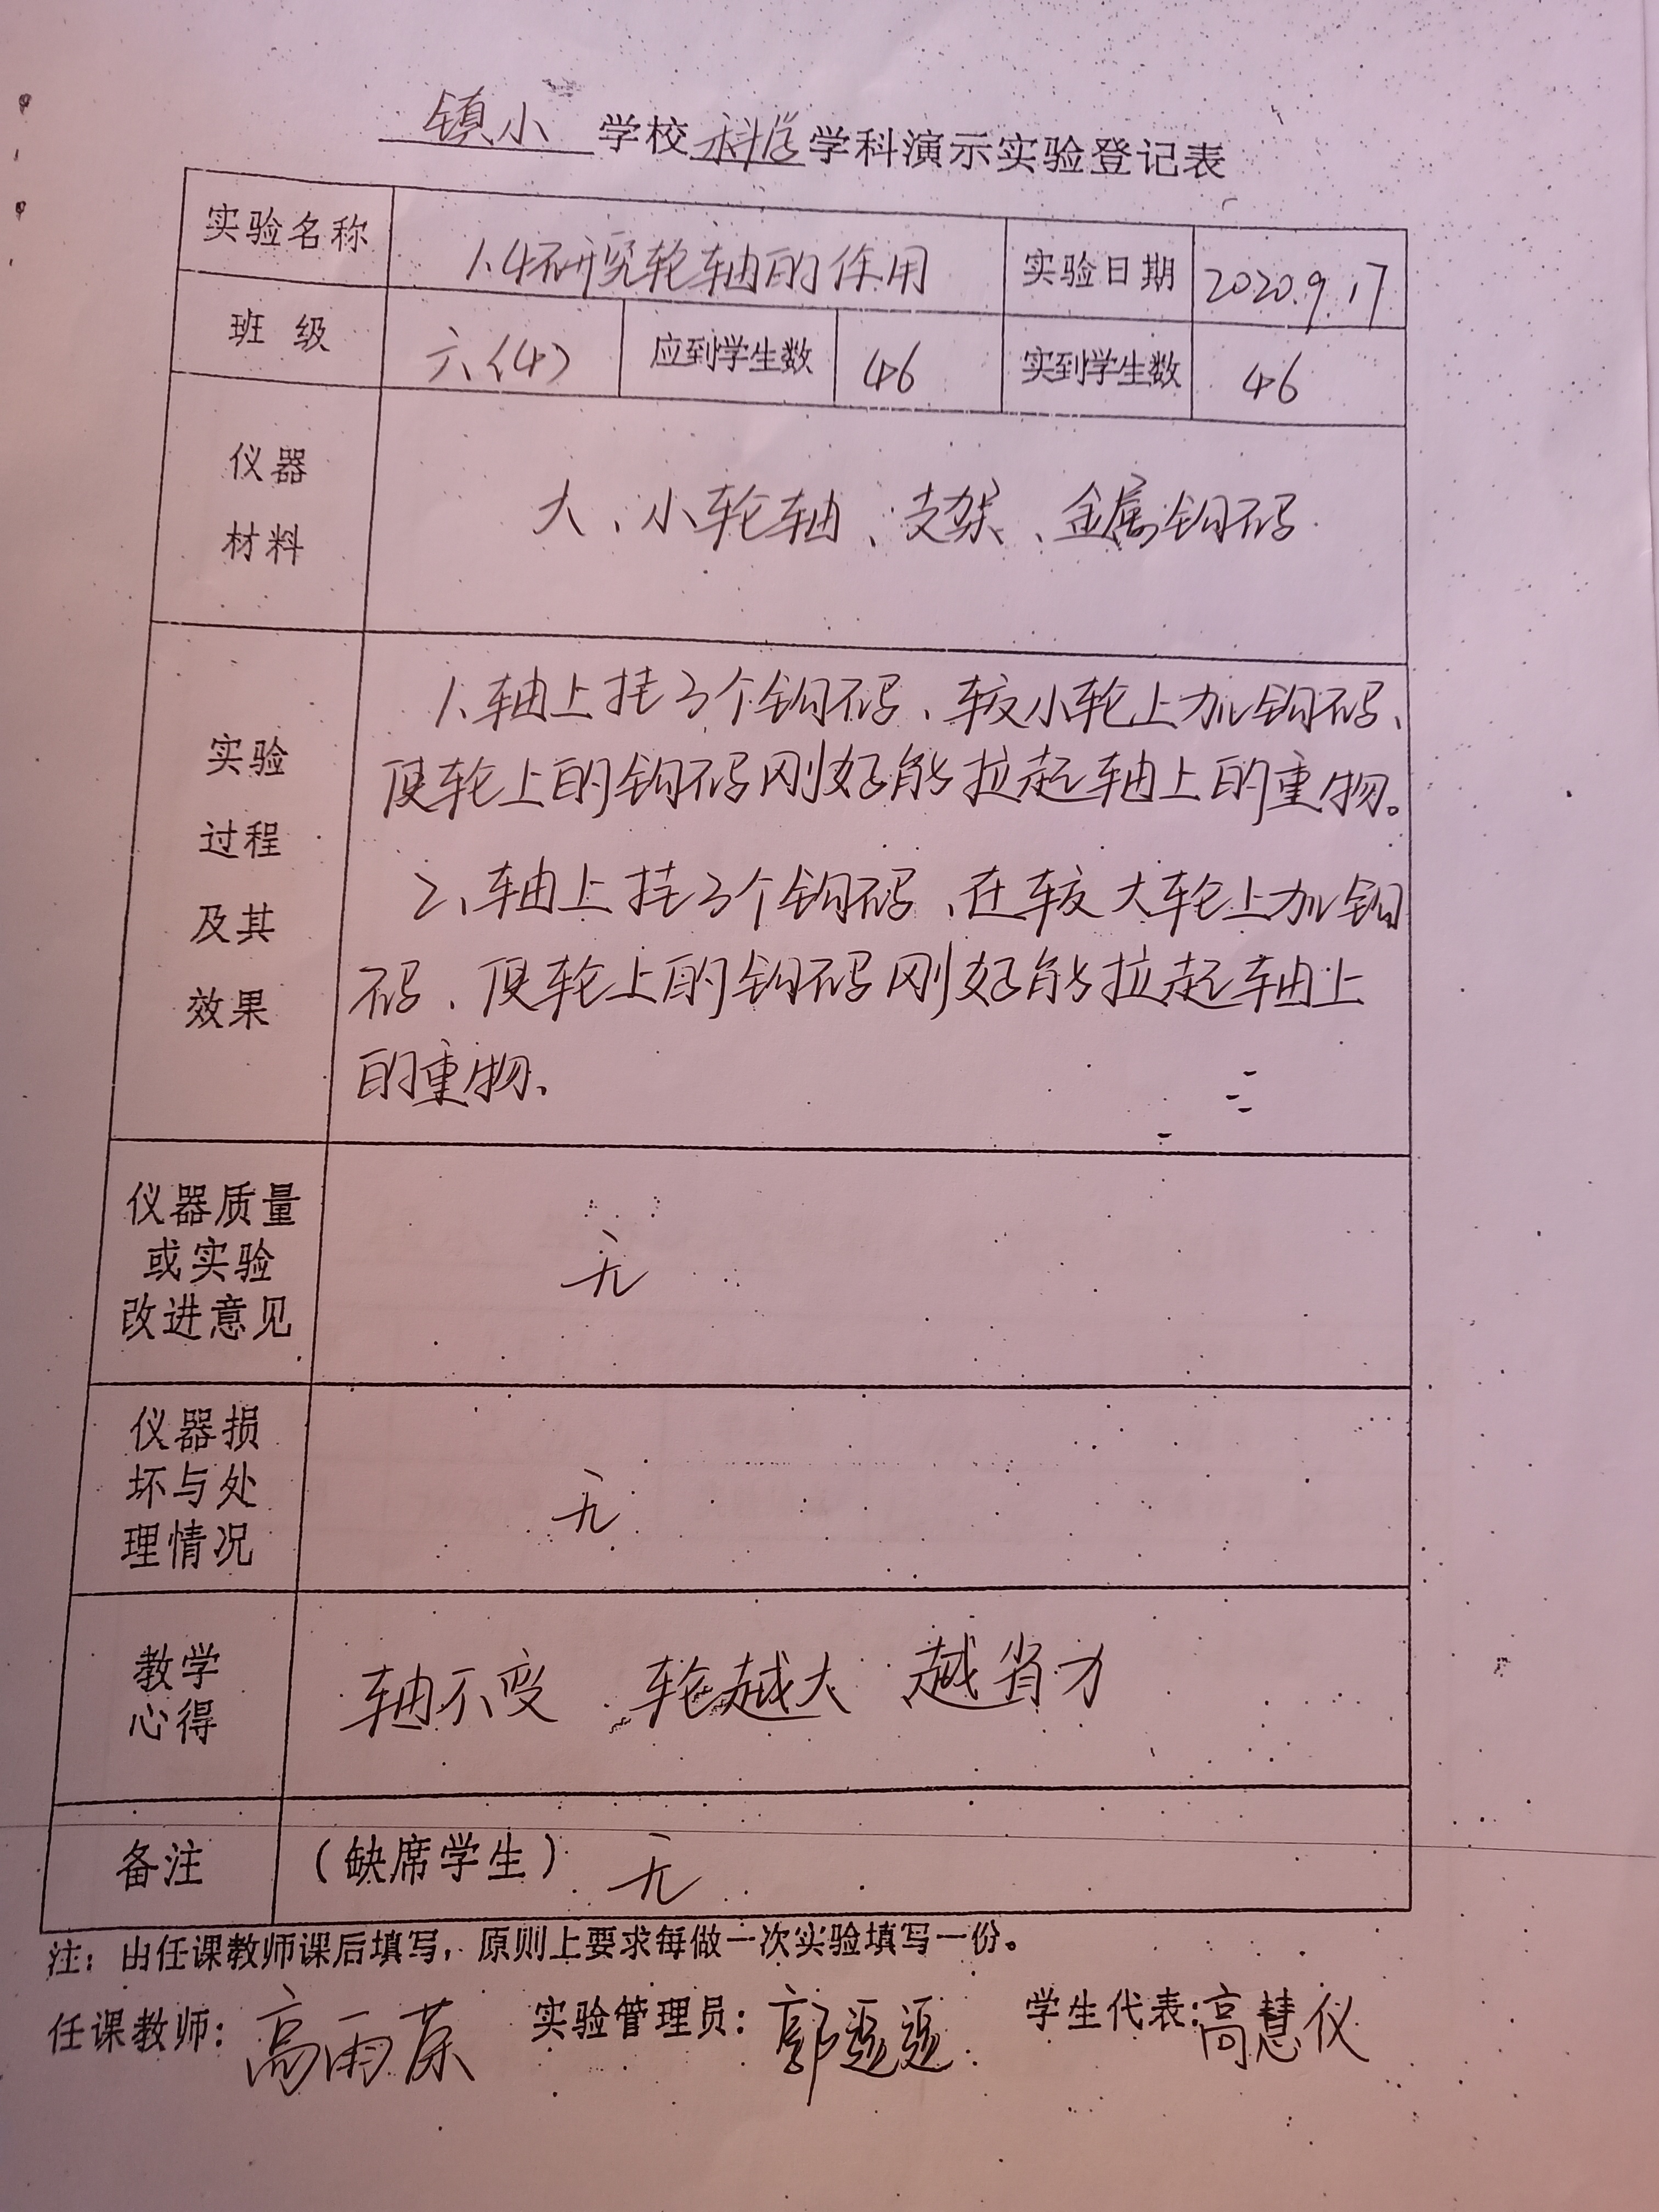 镇小 学校 科学 学科演示实验登记表
实验名称 1.4研究轮轴的作用 实验日期 2020.9.17
班 级 六(4) 应到学生数 46 实到学生数 46
仪器
材料
大、小轮轴、支架、金属钩码
实验
过程
及其
效果
1、轴上挂3个钩码、较小轮上加钩码、
使轮上的钩码刚好能拉起轴上的重物。
2、轴上挂3个钩码、在较大轮上加钩
码、使轮上的钩码刚好能拉起轴上
的重物、
仪器质量
或实验
改进意见
无
仪器损
坏与处
理情况
无
教学
心得
轴不变 轮越大 越省力
备注 (缺席学生) 无
注：由任课教师课后填写，原则上要求每做一次实验填写一份。
任课教师: 高雨 实验管理员: 郭 学生代表: 高慧仪